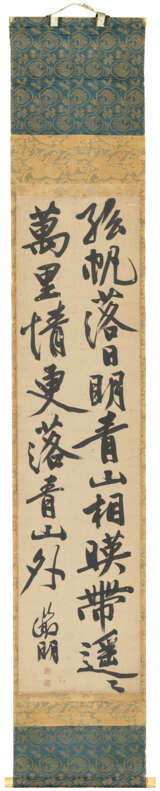 孤帆落日明青山相暎帶遥〻
萬里情更落青山外
徵明